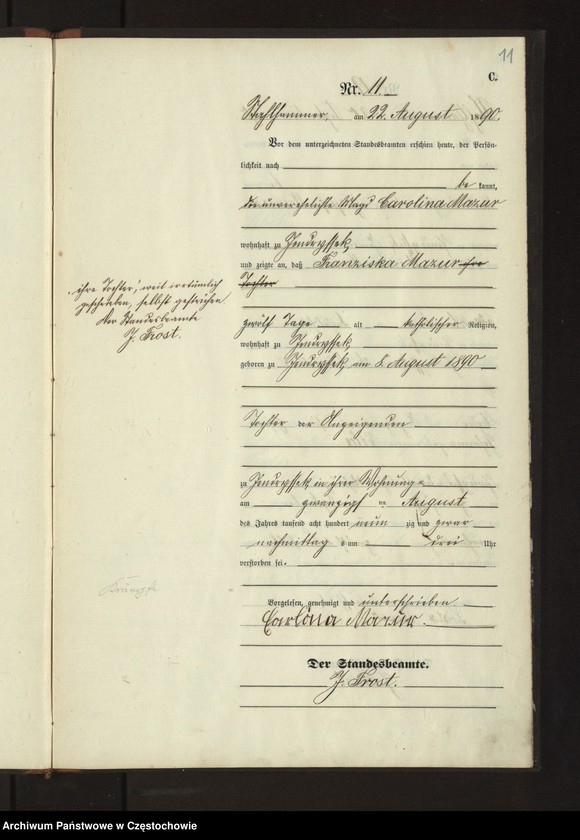 11
C.
Nr. 11.
Stahlhammer, am 22. August 1890.
Vor dem unterzeichneten Standesbeamten erschien heute, der Persön-
lichkeit nach
be kannt,
die unverehelichte Magd Carolina Mazur
wohnhaft zu Jendryssek,
und zeigte an, daß Franziska Mazur ihre
Tochter
zwölf Tage alt katholischer Religion,
wohnhaft zu Jendryssek,
geboren zu Jendryssek, am 8. August 1890
Tochter der Anzeigenden
zu Jendryssek, in ihrer Wohnung
am zwanzigsten August
des Jahres tausend acht hundert neun zig und zwar
nachmittag s um drei Uhr
verstorben sei.
Vorgelesen, genehmigt und unterschrieben
Carlina Mazur.
Der Standesbeamte.
J. Frost.
„ihre Tochter", weil irrtümlich
geschrieben, selbst gestrichen
Der Standesbeamte
J. Frost.
Krämpfe
Archiwum Państwowe w Częstochowie